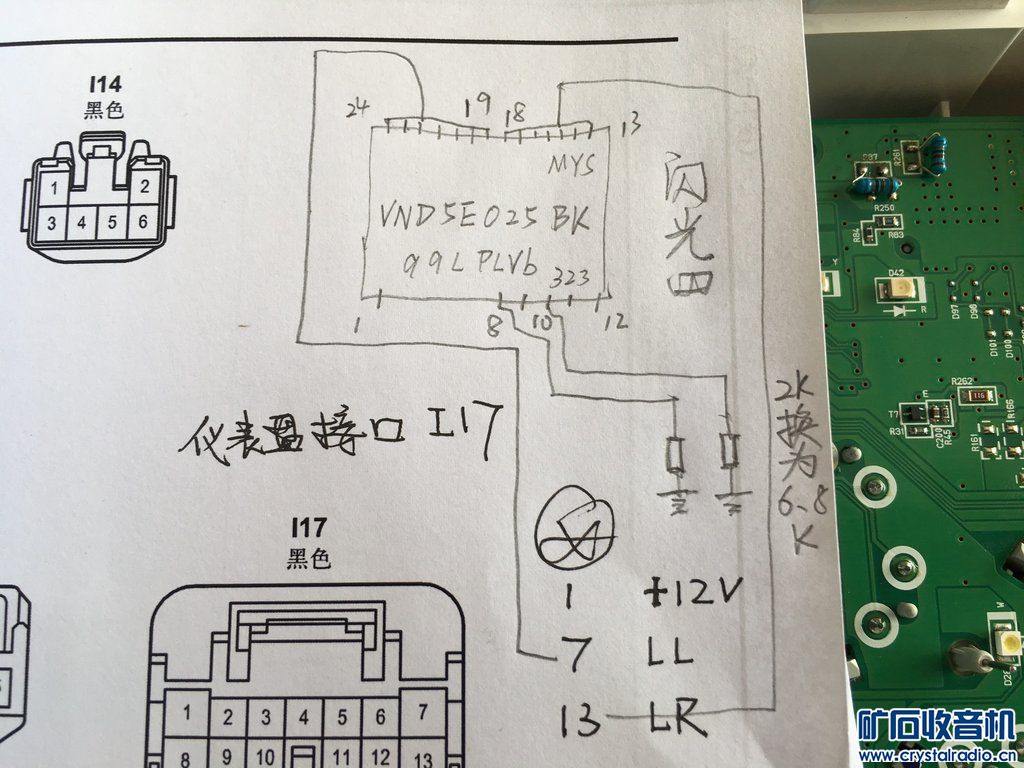 I14
黑色
1 2
3 4 5 6
24 19 18 13
MYS
VND5E025BK
99LPLVb
323
1 8 10 12
闪光
2K
换
为
6.8
K
仪表盘接口 I17
1 +12V
7 LL
13 LR
I17
黑色
1 2 3 4 5 6 7
8 9 10 11 12 13
R287
R261
R250
R84
R83
Y
D42
R
D97
D98
D101
D100
R262
T7
E
R31
C200
R45
R161
R166
W
矿石收音机
www.crystalradio.cn